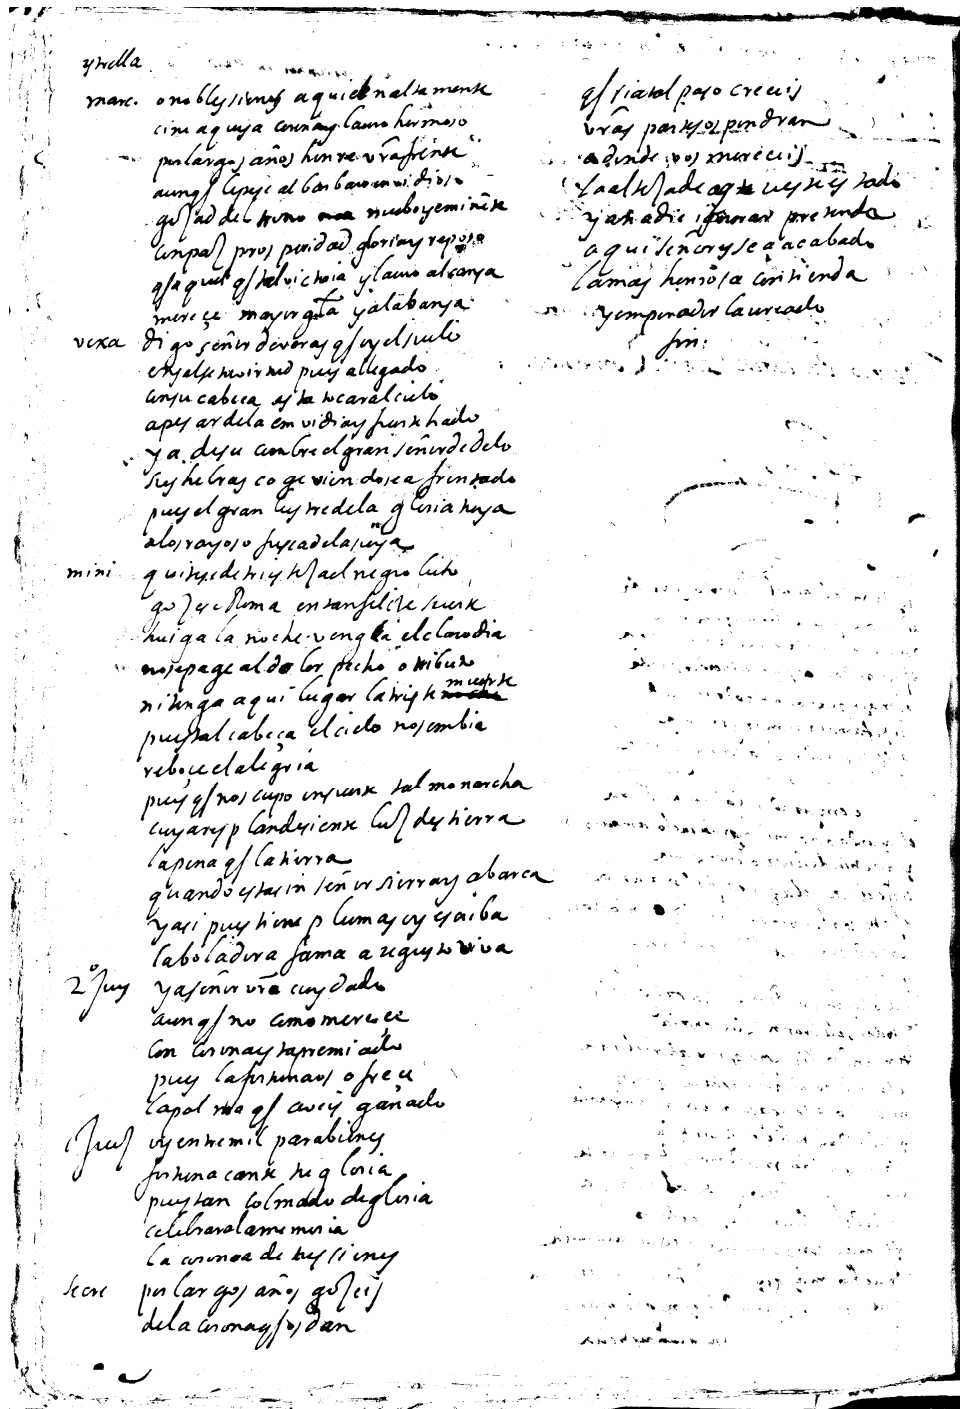 ystella
marc. o nobles sienes a quien altamente
cine aquesa corona y lauro hermoso
por largos años honre vrã frente
aunqꝫ le pese al barbaro envidioso
gozad del trono nuebo y eminẽte
con paz prosperidad gloria y reposo
qꝫ aquel qꝫ tal victoria y lauro alcanza
mereçe mayor gľa y alabanza
vera digo señor de veras qꝫ oy el suelo
ensalse tu virtud pues a llegado
con su cabeça esta tocar al cielo
a pesar de la embidia y fuerte hado
ya de su cumbre el gran señor de delo
sus hebras coge viendose afrentado
pues el gran lustre de la gloria tuya
a los rayos ofusca de la suya
mini quitese de tristeza el negro luto
gozese Roma en tan felize suerte
huiga la noche venga el claro dia
no se pague al dolor pecho o tributo
ni tenga aqui lugar la triste muerte
pues tal cabeça el cielo nos embia
reboçe el alegria
pues qꝫ nos cupo en suerte tal monarcha
cuya resplandesiente luz destierra
la pena qꝫ la tierra
quando estas in señor sierra y abarca
y asi pues tiene plumas oy esciba
la boladora fama augusto viva
2º Juez ya señor vrõ cuydado
aunqꝫ no como mereçe
con corona esta premiado
pues la fortuna os ofreçe
la palma qꝫ aveis ganado
1 Juez oy entre mil parabienes
fortuna cante tu gloria
pues tan colmado de gloria
celebrara la memoria
la corona de tus sienes
secre por largos años gozeis
de la corona qꝫ os dan
qꝫ si a tal paso creceis
vrãs partes os pondran
adonde vos mereceis
la alteza de aqueste estado
y a nadie ignorar pretenda
aqui señores se a acabado
la mas honrosa contienda
y emperador laureado
fin.